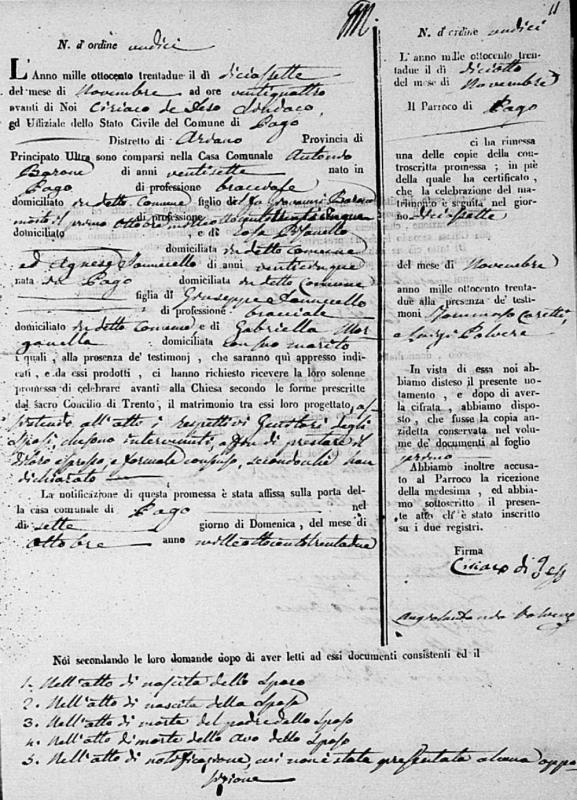 11
N. d'ordine undici
L'Anno mille ottocento trentadue il dì diciassette
del mese di Novembre ad ore ventiquattro
avanti di Noi Ciriaco de Sindaco,
ed Uffiziale dello Stato Civile del Comune di Pago
Distretto di Provincia di
Principato Ultra sono comparsi nella Casa Comunale Antonio
Barone di anni ventisette nato in
Pago di professione bracciale
domiciliato in detto Comune figlio del fu Giovanni Barone
morto il primo ottobre di professione
domiciliato , e di Rosa
domiciliata in detto Comune
ed Agnese Iannicello di anni venticinque
nata in Pago domiciliata in detto Comune
figlia di Giuseppe Iannicello
di professione bracciale
domiciliato in detto Comune e di Gabriella Mor-
ganella domiciliata con suo marito
i quali , alla presenza de' testimonj , che saranno quì appresso indi-
cati , e da essi prodotti , ci hanno richiesto ricevere la loro solenne
promessa di celebrare avanti alla Chiesa secondo le forme prescritte
dal sacro Concilio di Trento , il matrimonio tra essi loro progettato, as-
sistendo all'atto i respettivi Genitori degli
Sposi, intervenuti a fin di prestare il
di loro espresso, e formale consenso, secondochè han
dichiarato
La notificazione di questa promessa è stata affissa sulla porta del-
la casa comunale di Pago nel
dì sette giorno di Domenica , del mese di
ottobre anno milleottocentotrentadue
N. d'ordine undici
L'anno mille ottocento tren-
tadue il dì diciotto
del mese di Novembre
Il Parroco di Pago
ci ha rimessa
una delle copie della con-
troscritta promessa ; in piè
della quale ha certificato ,
che la celebrazione del ma-
trimonio è seguita nel gior-
no diciassette
del mese di Novembre
anno mille ottocento trenta-
due alla presenza de' testi-
moni Tommaso
e Luigi
In vista di essa noi ab-
biamo disteso il presente no-
tamento , e dopo di aver-
la cifrata , abbiamo dispo-
sto , che fusse la copia an-
zidetta conservata nel volu-
me de' documenti al foglio
Abbiamo inoltre accusa-
to al Parroco la ricezione
della medesima , ed abbia-
mo sottoscritto il presen-
te atto ch' è stato inscritto
su i due registri.
Firma
Ciriaco di
Noi secondando le loro domande dopo di aver letti ad essi documenti consistenti ed il
1. Nell'atto di nascita dello Sposo
2. Nell'atto di nascita della Sposa
3. Nell'atto di morte del padre dello Sposo
4. Nell'atto di morte dello Avo dello Sposo
5. Nell'atto di notificazione, cui non è stata presentata alcuna oppo-
sizione